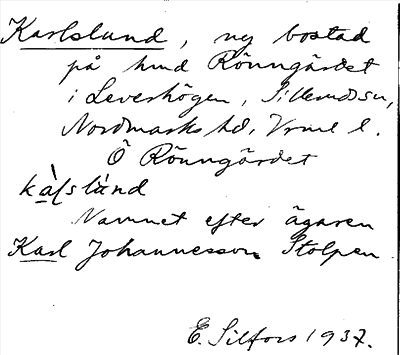 Karlslund, ny bostad
på hmd Rönngärdet
i Leverhögen, Sillerudssn,
Nordmarks hd, Vrml l.
Ö Rönngärdet
kàlslànd
Namnet efter ägaren
Karl Johannesson Stolpen
E. Silfors 1937.